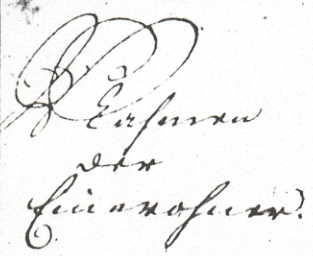 Nahmen
der
Einwohner.